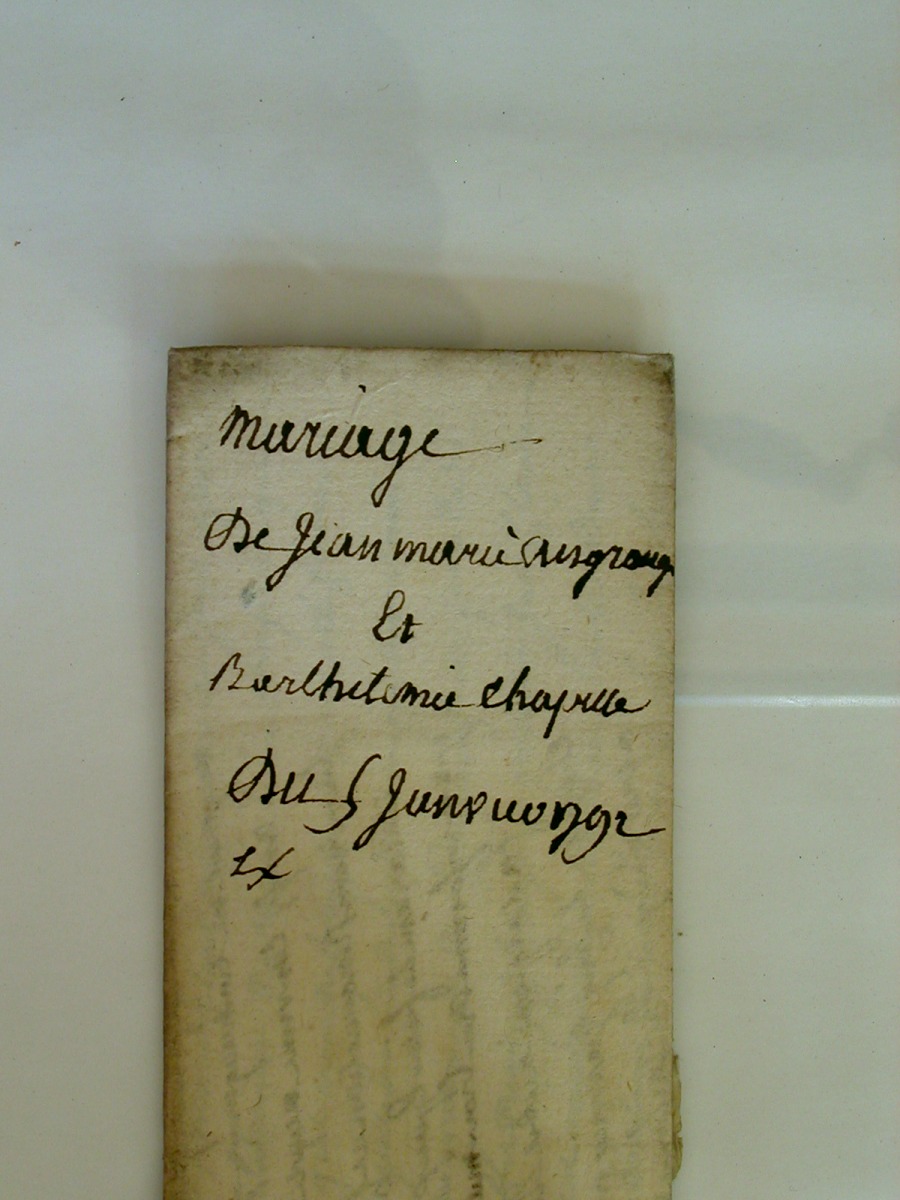 mariage
De Jean marie desgrange
Et
Barthelemie Chapelle
Du 5 Janvier 1792
Ex